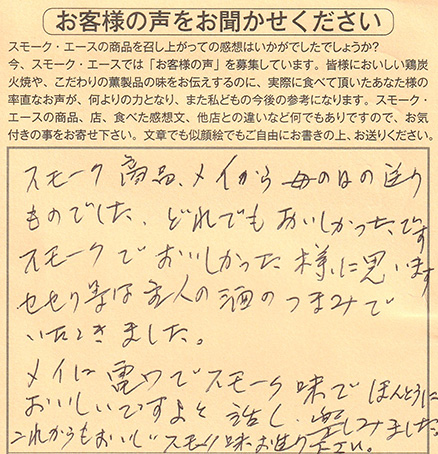 お客様の声をお聞かせください
スモーク・エースの商品を召し上がっての感想はいかがでしたでしょうか?
今、スモーク・エースでは「お客様の声」を募集しています。皆様においしい鶏炭
火焼や、こだわりの薫製品の味をお伝えするのに、実際に食べて頂いたあなた様の
率直なお声が、何よりの力となり、また私どもの今後の参考になります。スモーク・
エースの商品、店、食べた感想文、他店との違いなど何でもありですので、お気
付きの事をお寄せ下さい。文章でも似顔絵でもご自由にお書きの上、お送りください。
スモーク商品、メイから母の日の送り
ものでした、どれでもおいしかったです
スモークでおいしかった様に思います
セセリ等は主人の酒のつまみで
いただきました。
メイに電ワでスモーク味でほんとうに
おいしいですよと話し、楽しみました。
これからもおいしいスモーク味お送り下さい。